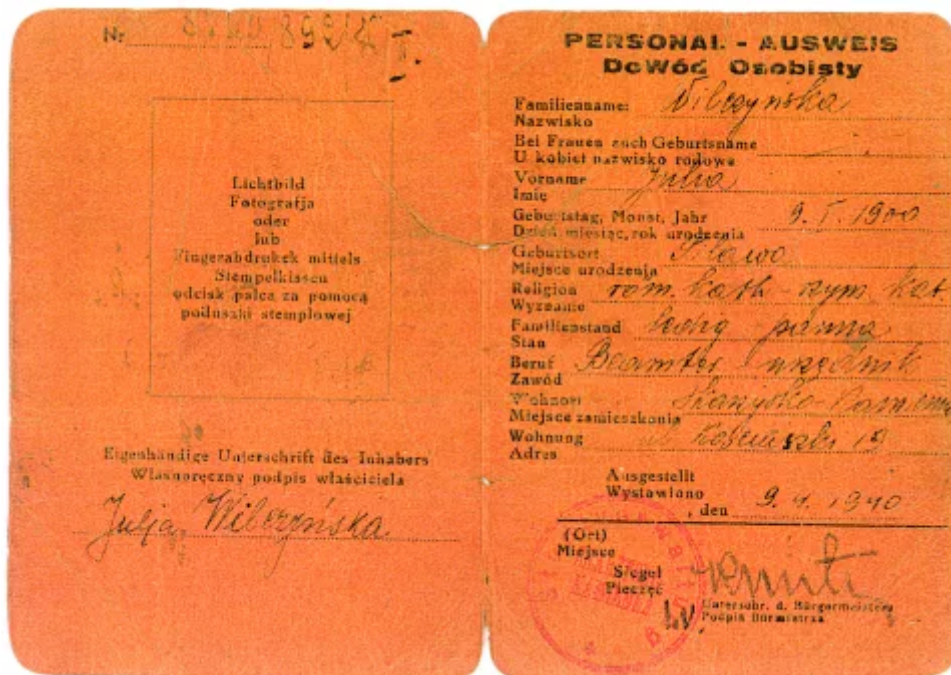 Nr
I.
Lichtbild
Fotografja
oder
lub
Fingerabdrukek mittels
Stempelkissen
odcisk palca za pomocą
poduszki stemplowej
Eigenhändige Unterschrift des Inhabers
Własnoręczny podpis właściciela
Julja Wilczyńska
PERSONAL - AUSWEIS
DoWód Osobisty
Familienname: Wilczyńska
Nazwisko
Bei Frauen auch Geburtsname
U kobiet nazwisko rodowe
Vorname Julia
Imię
Geburtstag, Monat, Jahr 9. I. 1900
Dzień, miesiąc, rok urodzenia
Geburtsort
Miejsce urodzenia
Religion röm. kath - rzym. kat
Wyznanie
Familienstand ledig panna
Stan
Beruf Beamter urzędnik
Zawód
Wohnort Skarżysko-Kamienna
Miejsce zamieszkania
Wohnung ul. Kościuszki
Adres
Ausgestellt
Wystawiono
, den 1940
(Ort)
Miejsce
Siegel
Pieczęć
Unterschr. d. Bürgermeisters
Podpis Burmistrza